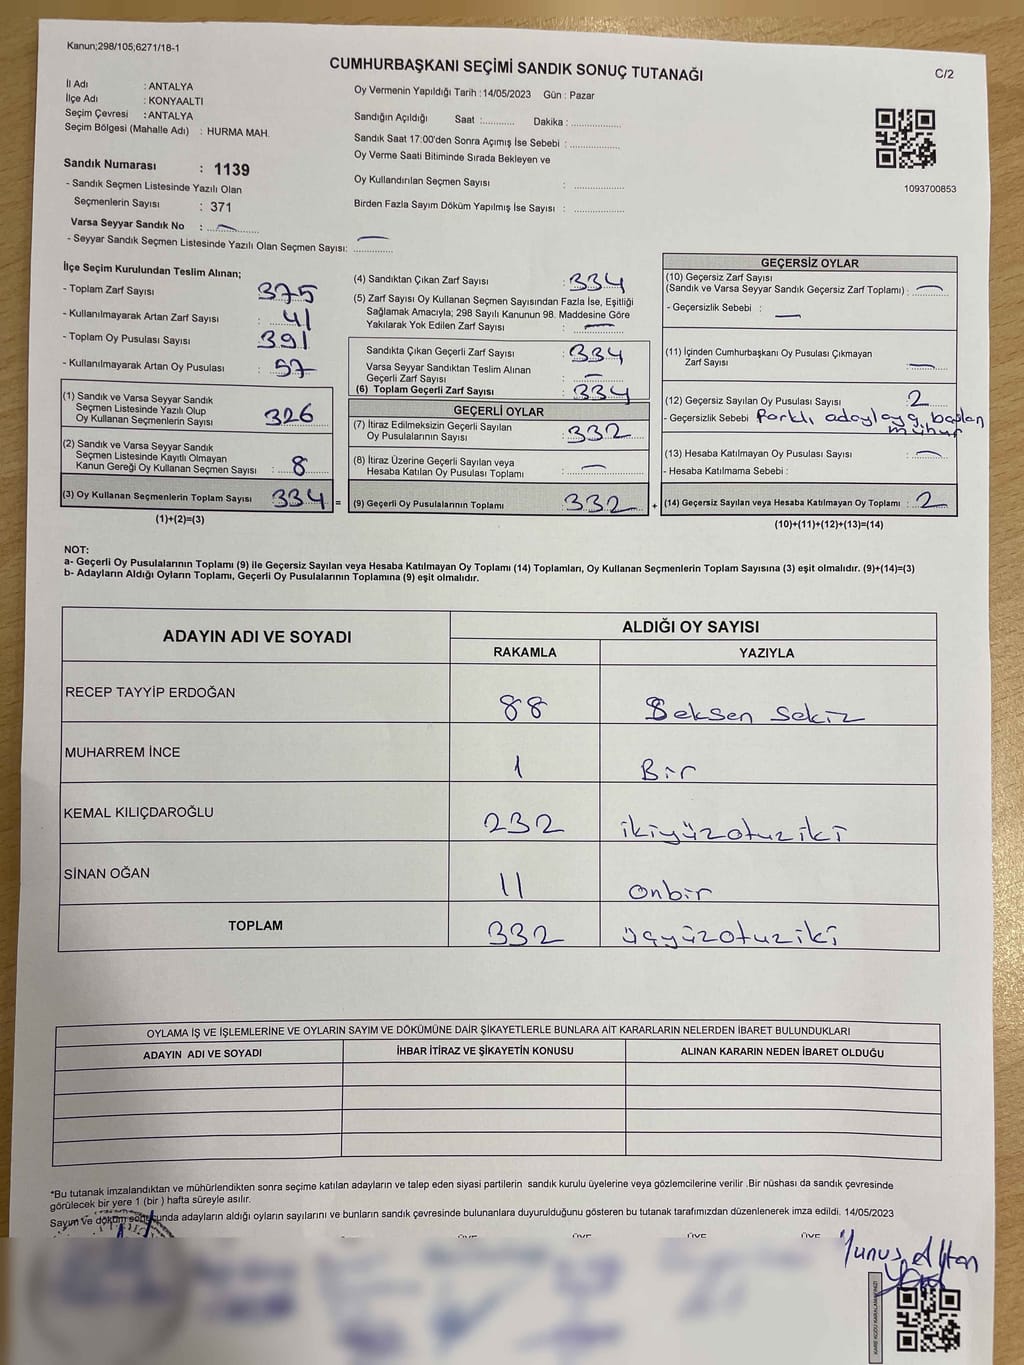 Kanun;298/105,6271/18-1
CUMHURBAŞKANI SEÇİMİ SANDIK SONUÇ TUTANAĞI
C/2
İl Adı : ANTALYA
İlçe Adı : KONYAALTI
Seçim Çevresi : ANTALYA
Seçim Bölgesi (Mahalle Adı) : HURMA MAH.
Sandık Numarası : 1139
- Sandık Seçmen Listesinde Yazılı Olan
Seçmenlerin Sayısı : 371
Varsa Seyyar Sandık No : —
- Seyyar Sandık Seçmen Listesinde Yazılı Olan Seçmen Sayısı: —
Oy Vermenin Yapıldığı Tarih : 14/05/2023 Gün : Pazar
Sandığın Açıldığı Saat :........... Dakika : ..................
Sandık Saat 17:00'den Sonra Açımış İse Sebebi : ..................
Oy Verme Saati Bitiminde Sırada Bekleyen ve
Oy Kullandırılan Seçmen Sayısı : ..................
Birden Fazla Sayım Döküm Yapılmış İse Sayısı : ..................
1093700853
İlçe Seçim Kurulundan Teslim Alınan;
- Toplam Zarf Sayısı : 375
- Kullanılmayarak Artan Zarf Sayısı : 41
- Toplam Oy Pusulası Sayısı : 391
- Kullanılmayarak Artan Oy Pusulası : 57
(1) Sandık ve Varsa Seyyar Sandık
Seçmen Listesinde Yazılı Olup
Oy Kullanan Seçmenlerin Sayısı : 326
(2) Sandık ve Varsa Seyyar Sandık
Seçmen Listesinde Kayıtlı Olmayan
Kanun Gereği Oy Kullanan Seçmen Sayısı : 8
(3) Oy Kullanan Seçmenlerin Toplam Sayısı : 334 =
(1)+(2)=(3)
(4) Sandıktan Çıkan Zarf Sayısı : 334
(5) Zarf Sayısı Oy Kullanan Seçmen Sayısından Fazla İse, Eşitliği
Sağlamak Amacıyla; 298 Sayılı Kanunun 98. Maddesine Göre
Yakılarak Yok Edilen Zarf Sayısı : —
Sandıkta Çıkan Geçerli Zarf Sayısı : 334
Varsa Seyyar Sandıktan Teslim Alınan
Geçerli Zarf Sayısı : —
(6) Toplam Geçerli Zarf Sayısı : 334
GEÇERLİ OYLAR
(7) İtiraz Edilmeksizin Geçerli Sayılan
Oy Pusulalarının Sayısı : 332
(8) İtiraz Üzerine Geçerli Sayılan veya
Hesaba Katılan Oy Pusulası Toplamı : —
(9) Geçerli Oy Pusulalarının Toplamı : 332 +
GEÇERSİZ OYLAR
(10) Geçersiz Zarf Sayısı
(Sandık ve Varsa Seyyar Sandık Geçersiz Zarf Toplamı) : —
- Geçersizlik Sebebi : —
(11) İçinden Cumhurbaşkanı Oy Pusulası Çıkmayan
Zarf Sayısı : —
(12) Geçersiz Sayılan Oy Pusulası Sayısı : 2
- Geçersizlik Sebebi farklı adaylara basılan
mühür
(13) Hesaba Katılmayan Oy Pusulası Sayısı : —
- Hesaba Katılmama Sebebi :
(14) Geçersiz Sayılan veya Hesaba Katılmayan Oy Toplamı : 2
(10)+(11)+(12)+(13)=(14)
NOT:
a- Geçerli Oy Pusulalarının Toplamı (9) ile Geçersiz Sayılan veya Hesaba Katılmayan Oy Toplamı (14) Toplamları, Oy Kullanan Seçmenlerin Toplam Sayısına (3) eşit olmalıdır. (9)+(14)=(3)
b- Adayların Aldığı Oyların Toplamı, Geçerli Oy Pusulalarının Toplamına (9) eşit olmalıdır.
ADAYIN ADI VE SOYADI
ALDIĞI OY SAYISI
RAKAMLA YAZIYLA
RECEP TAYYİP ERDOĞAN 88 Seksen Sekiz
MUHARREM İNCE 1 Bir
KEMAL KILIÇDAROĞLU 232 ikiyüzotuziki
SİNAN OĞAN 11 onbir
TOPLAM 332 üçyüzotuziki
OYLAMA İŞ VE İŞLEMLERİNE VE OYLARIN SAYIM VE DÖKÜMÜNE DAİR ŞİKAYETLERLE BUNLARA AİT KARARLARIN NELERDEN İBARET BULUNDUKLARI
ADAYIN ADI VE SOYADI İHBAR İTİRAZ VE ŞİKAYETİN KONUSU ALINAN KARARIN NEDEN İBARET OLDUĞU
*Bu tutanak imzalandıktan ve mühürlendikten sonra seçime katılan adayların ve talep eden siyasi partilerin sandık kurulu üyelerine veya gözlemcilerine verilir .Bir nüshası da sandık çevresinde
görülecek bir yere 1 (bir ) hafta süreyle asılır.
Sayım ve döküm sonucunda adayların aldığı oyların sayılarını ve bunların sandık çevresinde bulunanlara duyurulduğunu gösteren bu tutanak tarafımızdan düzenlenerek imza edildi. 14/05/2023
ÜYE ÜYE ÜYE ÜYE
Yunus
KARE KODU KARALAMAYINIZ!